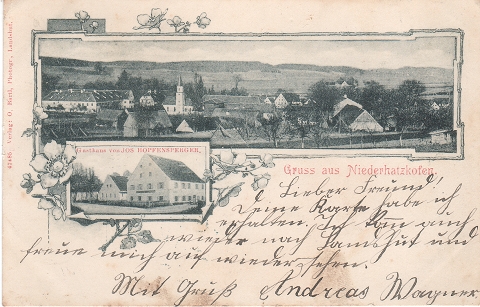 Gasthaus von JOS. HOPFENSPERGER.
Gruss aus Niederhatzkofen.
Lieber Freund!
Deine Karte habe ich
erhalten. Ich auch
wieder nach Landshut und
freue mich auf wiedersehen.
Mit Gruß Andreas Wagner
Verlag: O. Photogr., Landshut.